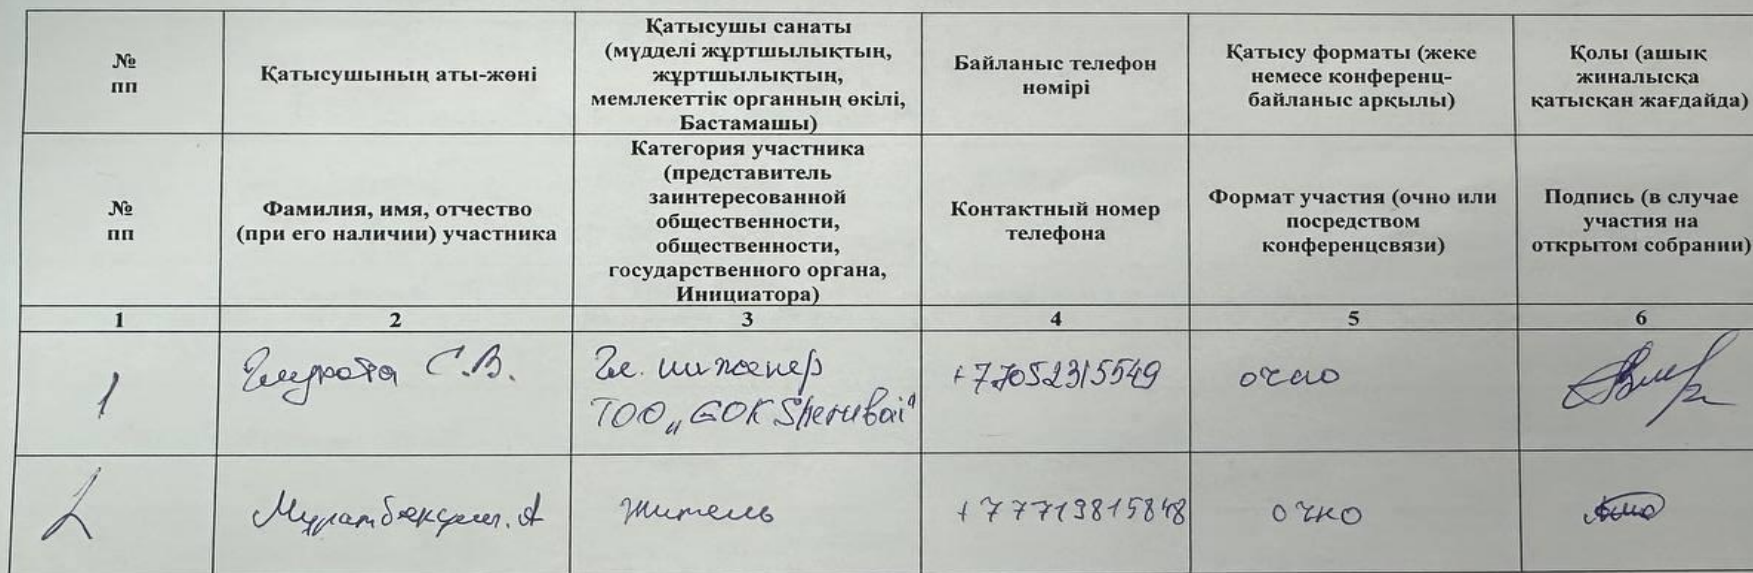 №
пп
Қатысушының аты-жөні
Қатысушы санаты
(мүдделі жұртшылықтың,
жұртшылықтың,
мемлекеттік органның өкілі,
Бастамашы)
Байланыс телефон
нөмірі
Қатысу форматы (жеке
немесе конференц-
байланыс арқылы)
Қолы (ашық
жиналысқа
қатысқан жағдайда)
№
пп
Фамилия, имя, отчество
(при его наличии) участника
Категория участника
(представитель
заинтересованной
общественности,
общественности,
государственного органа,
Инициатора)
Контактный номер
телефона
Формат участия (очно или
посредством
конференцсвязи)
Подпись (в случае
участия на
открытом собрании)
1
2
3
4
5
6
1
С.В.
Гл. инженер
ТОО „GOK Sherubai"
+77052315549
очно
2
А
житель
очно